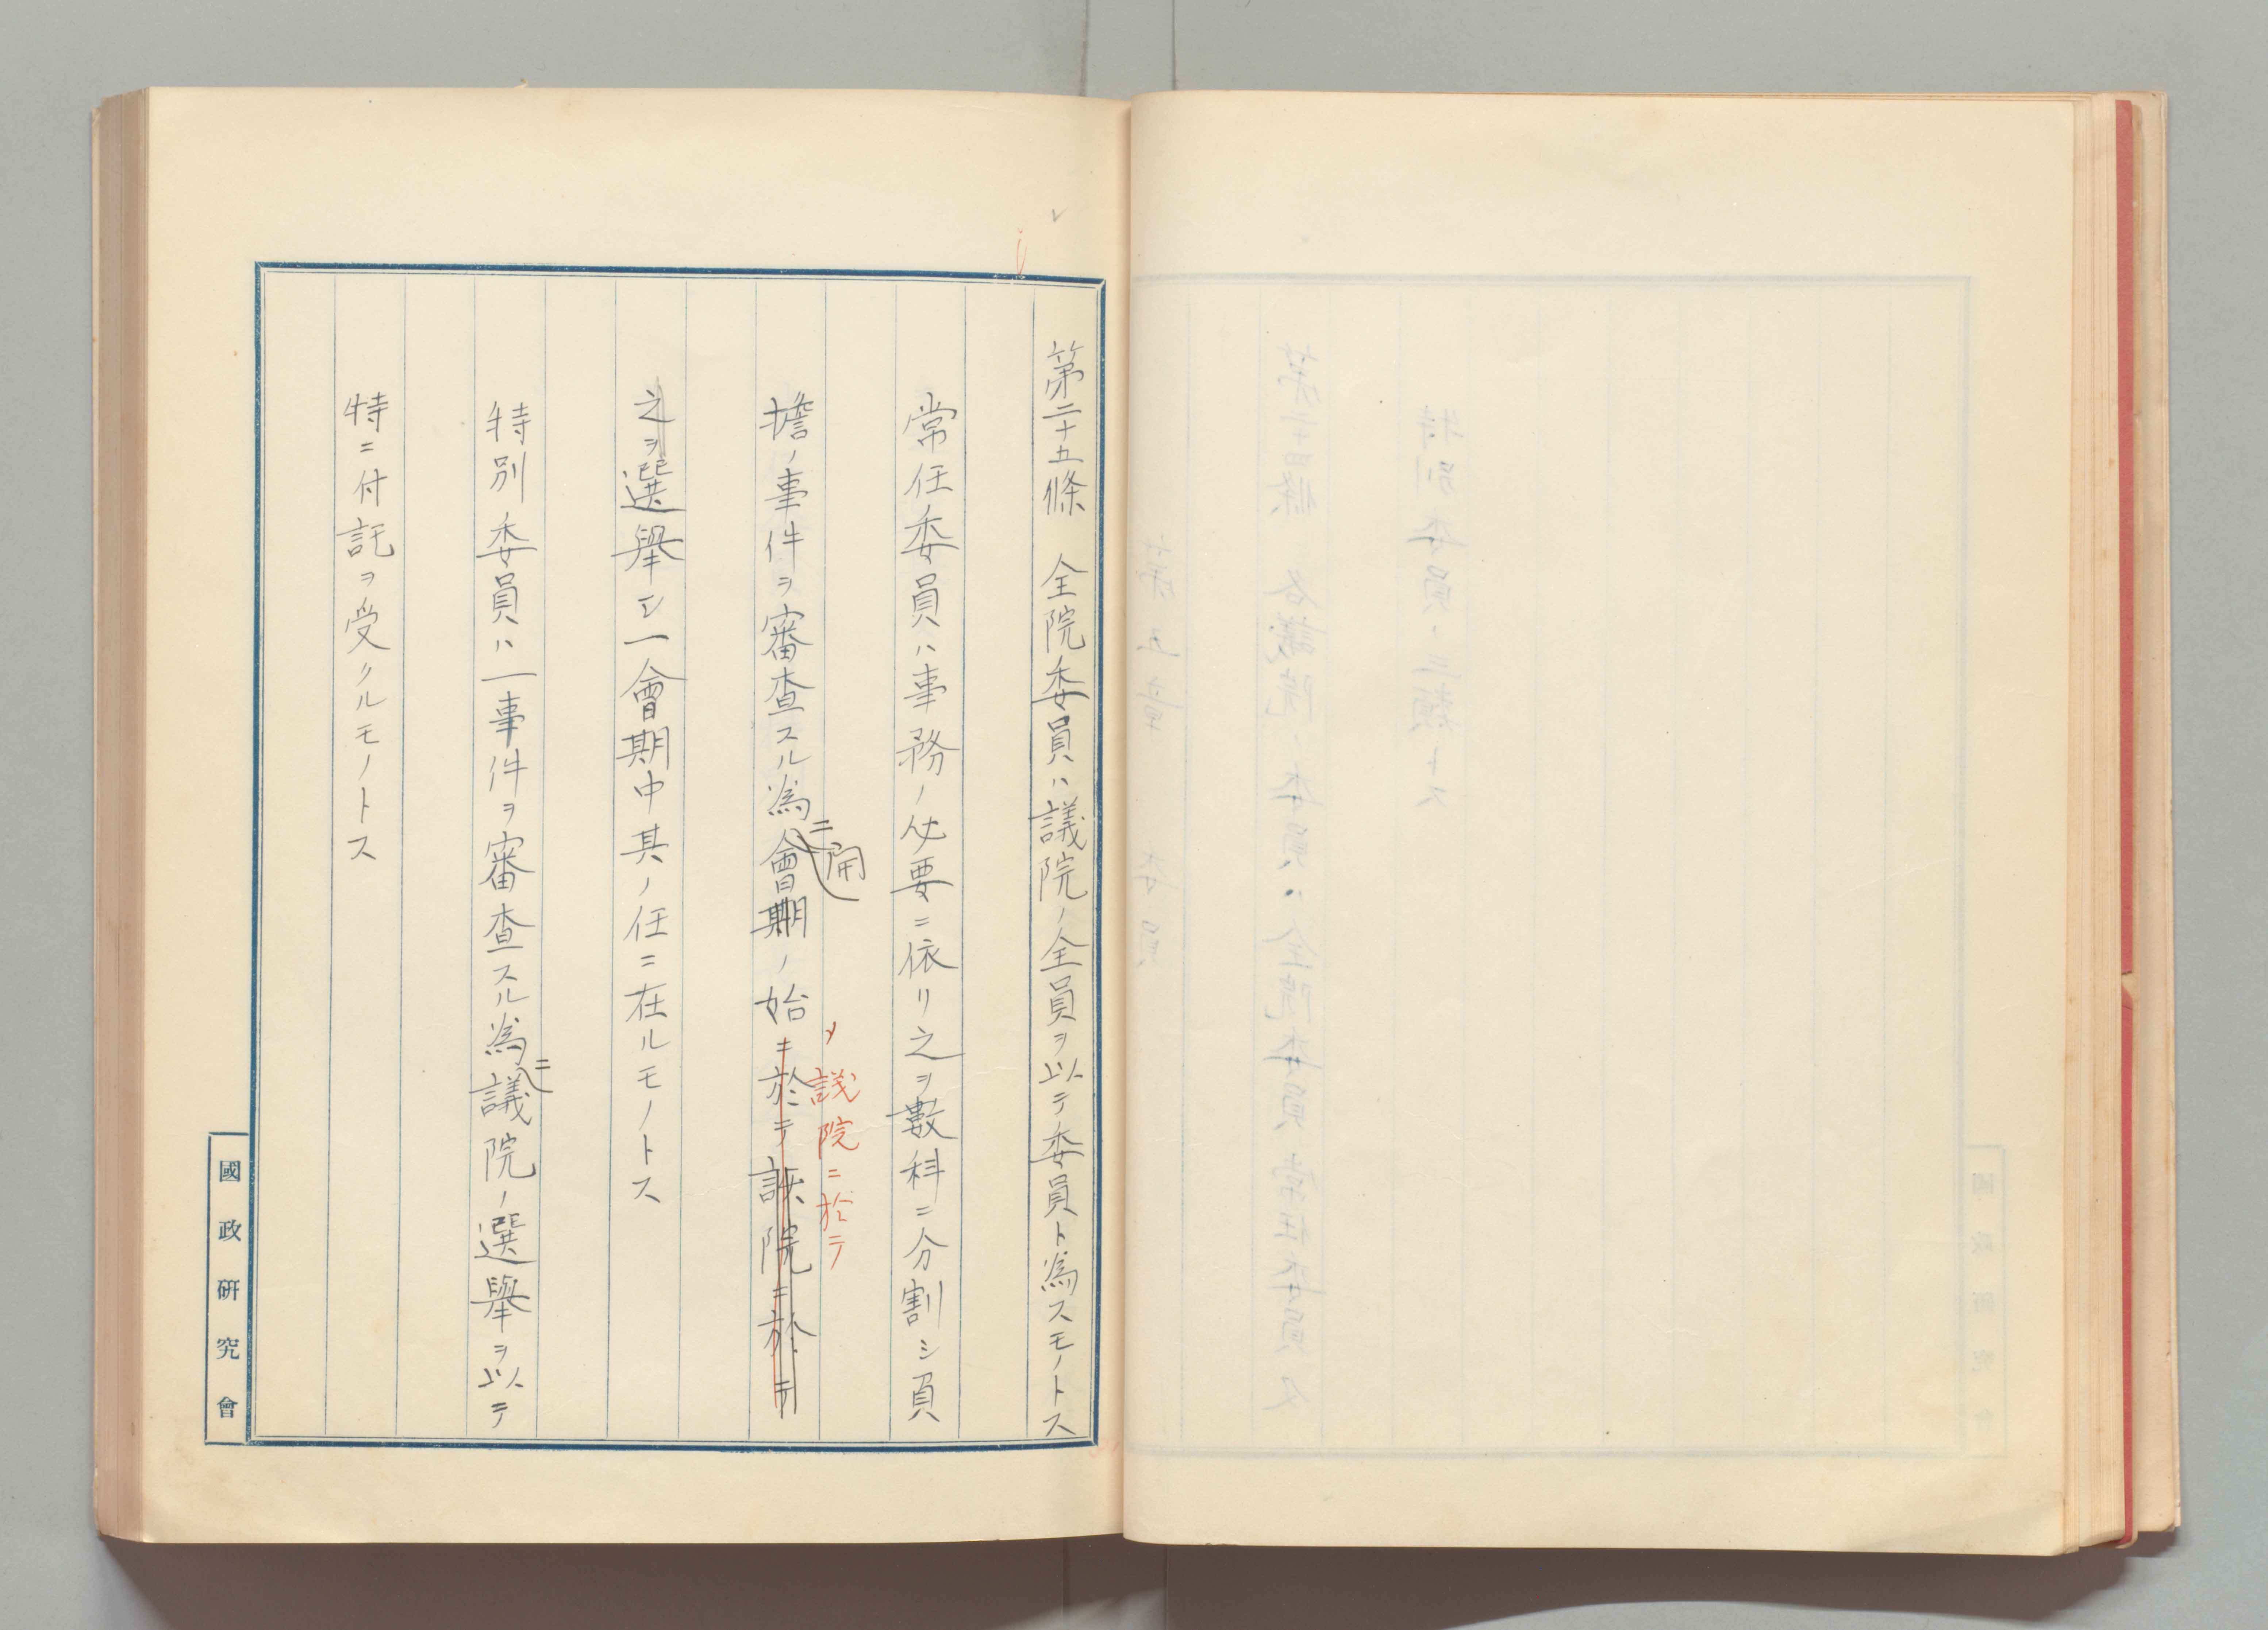 第二十五條　全院委員ハ議院ノ全員ヲ以テ委員ト爲スモノトス
常任委員ハ事務ノ必要ニ依リ之ヲ數科ニ分割シ負
擔ノ事件ヲ審査スル爲會期ノ始ニ於テ議院ニ於テ
ニ開
メ議院ニ於テ
之ヲ選擧シ一會期中其ノ任ニ在ルモノトス
特別委員ハ一事件ヲ審査スル爲議院ノ選擧ヲ以テ
ニ
特ニ付託ヲ受クルモノトス
國政研究會